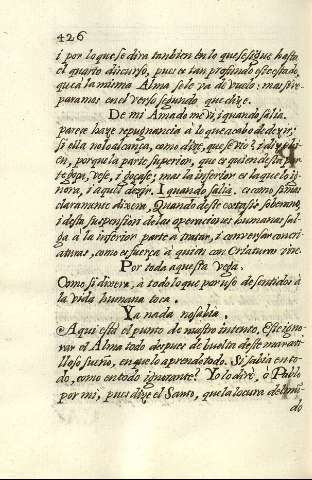 426
i por lo que se dira tanbien en lo que se sigue hasta
el quarto discurso, pues es tan profundo este estado,
que a la misma Alma se le va de vuelo; mas si re-
paramos en el verso segundo que dize.
De mi Amado me vi, i quando salia.
parece haze repugnancia à lo que acabo de dezir;
si ella no lo alcança, como dize, que se vio? i dize
en, porque la parte superior, que es quien desta
regoça, vese, i goçase; mas la inferior es la que lo ig-
nora, i aquel dezir. I quando salia, es como si mas
claramente dixera, Quando deste extasis soberano,
i desta suspension de las operaciones humanas sal-
ga à la inferior parte à tratar, i conversar con cri-
aturas, como es fuerça à quien con Criaturas vive.
Por toda aquesta vega.
Como si dixera, à todo lo que por uso de sentidos à
la vida humana toca.
Ya nada no sabia.
Aqui està el punto de nuestro intento, Este igno-
rar el Alma todo despues de buelta deste maravi-
lloso sueño, en que lo aprende todo. Si sabia en to-
do, como en todo ignorante? Yo lo dirè, ò Pablo
por mi, pues dize el Santo, que la locura del
do